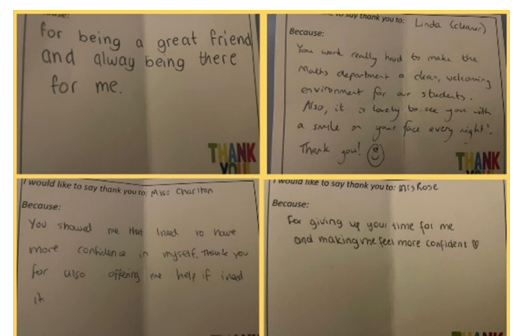 for being a great friend
and alway being there
for me.
THANK
YOU
to say thank you to: Linda (cleaner)
Because:
You work really hard to make the
Maths department a clean, welcoming
environment for our students.
Also, it is lovely to see you with
a smile on your face every night!
Thank you!
THANK
YOU
I would like to say thank you to: Miss Charlton
Because:
You showed me that I need to have
more confidence in myself. Thank you
for also offering me help if I need
it.
I would like to say thank you to: Mrs Rose
Because:
For giving up your time for me
and making me feel more confident